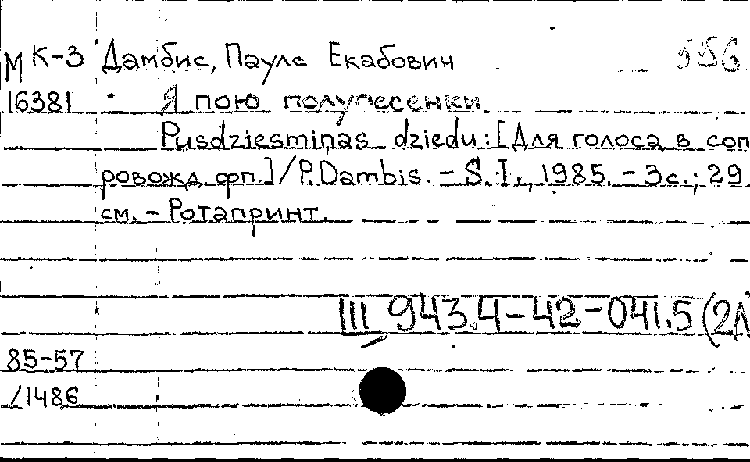 М К-3 Дамбис, Паулс Екабович 556
16381 Я пою полупесенки.
Pusdziesmiņas dziedu: [Для голоса в соп
ровожд. фп.] / P. Dambis. - S. l., 1985. - 3с.; 29
см. - Ротапринт.
III 943.4-42-041.5 (2Л
85-57
/1486